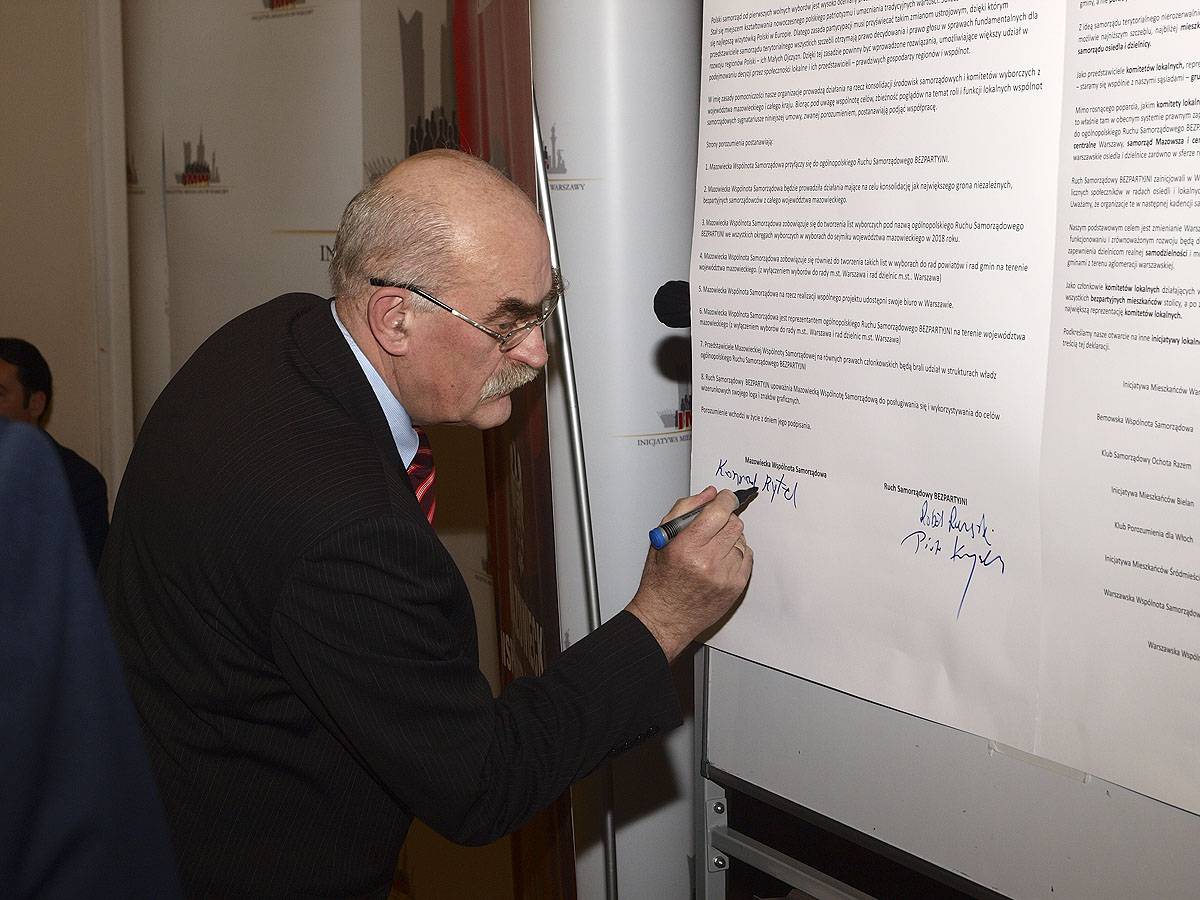 Polski samorząd od pierwszych wolnych wyborów jest wysoko oceniany
Stał się miejscem kształtowania nowoczesnego polskiego patriotyzmu i umacniania tradycyjnych wartości.
się najlepszą wizytówką Polski w Europie. Dlatego zasada partycypacji musi przyświecać takim zmianom ustrojowym, dzięki którym
przedstawiciele samorządu terytorialnego wszystkich szczebli otrzymają prawo decydowania i prawo głosu w sprawach fundamentalnych dla
rozwoju regionów Polski – ich Małych Ojczyzn. Dzięki tej zasadzie powinny być wprowadzone rozwiązania, umożliwiające większy udział w
podejmowaniu decyzji przez społeczności lokalne i ich przedstawicieli – prawdziwych gospodarzy regionów i wspólnot.
W imię zasady pomocniczości nasze organizacje prowadzą działania na rzecz konsolidacji środowisk samorządowych i komitetów wyborczych z
województwa mazowieckiego i całego kraju. Biorąc pod uwagę wspólnotę celów, zbieżność poglądów na temat roli i funkcji lokalnych wspólnot
samorządowych sygnatariusze niniejszej umowy, zwanej porozumieniem, postanawiają podjąć współpracę.
Strony porozumienia postanawiają:
1. Mazowiecka Wspólnota Samorządowa przyłączy się do ogólnopolskiego Ruchu Samorządowego BEZPARTYJNI.
2. Mazowiecka Wspólnota Samorządowa będzie prowadziła działania mające na celu konsolidację jak największego grona niezależnych,
bezpartyjnych samorządowców z całego województwa mazowieckiego.
3. Mazowiecka Wspólnota Samorządowa zobowiązuje się do tworzenia list wyborczych pod nazwą ogólnopolskiego Ruchu Samorządowego
BEZPARTYJNI we wszystkich okręgach wyborczych w wyborach do sejmiku województwa mazowieckiego w 2018 roku.
4. Mazowiecka Wspólnota Samorządowa zobowiązuje się również do tworzenia takich list w wyborach do rad powiatów i rad gmin na terenie
województwa mazowieckiego. (z wyłączeniem wyborów do rady m.st. Warszawa i rad dzielnic m.st.. Warszawa)
5. Mazowiecka Wspólnota Samorządowa na rzecz realizacji wspólnego projektu udostępni swoje biuro w Warszawie.
6. Mazowiecka Wspólnota Samorządowa jest reprezentantem ogólnopolskiego Ruchu Samorządowego BEZPARTYJNI na terenie województwa
mazowieckiego (z wyłączeniem wyborów do rady m.st.. Warszawa i rad dzielnic m.st. Warszawa)
7. Przedstawiciele Mazowieckiej Wspólnoty Samorządowej na równych prawach członkowskich będą brali udział w strukturach władz
ogólnopolskiego Ruchu Samorządowego BEZPARTYJNI
8. Ruch Samorządowy BEZPARTYJNI upoważnia Mazowiecką Wspólnotę Samorządową do posługiwania się i wykorzystywania do celów
wizerunkowych swojego loga i znaków graficznych.
Porozumienie wchodzi w życie z dniem jego podpisania.
Mazowiecka Wspólnota Samorządowa
Konrad Rytel
Ruch Samorządowy BEZPARTYJNI
Piotr
gminy, a nie
Z ideą samorządu terytorialnego nierozerwalnie
możliwie najniższym szczeblu, najbliżej
samorządu osiedla i dzielnicy.
Jako przedstawiciele komitetów lokalnych,
– staramy się wspólnie z naszymi sąsiadami –
Mimo rosnącego poparcia, jakim komitety
to właśnie tam w obecnym systemie prawnym
do ogólnopolskiego Ruchu Samorządowego
centralne Warszawy, samorząd Mazowsza i
warszawskie osiedla i dzielnice zarówno w sferze
Ruch Samorządowy BEZPARTYJNI zainicjowali w
licznych społeczników w radach osiedli i
Uważamy, że organizacje te w następnej kadencji
Naszym podstawowym celem jest zmienianie
funkcjonowaniu i równoważonym rozwoju będą
zapewnienia dzielnicom realnej samodzielności i
gminami z terenu aglomeracji warszawskiej.
Jako członkowie komitetów lokalnych działających
wszystkich bezpartyjnych mieszkańców stolicy, a po
największą reprezentację komitetów lokalnych.
Podkreślamy nasze otwarcie na inne inicjatywy
treścią tej deklaracji.
Inicjatywa Mieszkańców
Bemowska Wspólnota Samorządowa
Klub Samorządowy Ochota Razem
Inicjatywa Mieszkańców Bielan
Klub Porozumienia dla Włoch
Inicjatywa Mieszkańców
Warszawska Wspólnota
Warszawska
IMW
WARSZAWY
INICJATYWA